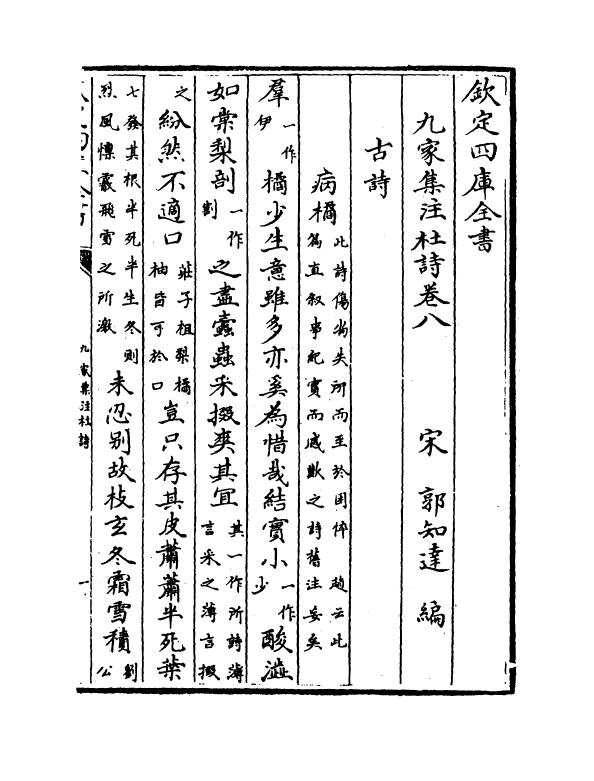 欽定四庫全書
九家集注杜詩卷八　宋　郭知達　編
古詩
病橘此詩傷物失所而至於困悴　趙云此篇直叙事紀實而感歎之詩舊注妄矣
羣一作伊橘少生意雖多亦奚為惜哉結實小一作少酸澁
如棠梨剖一作割之盡蠹蟲采掇爽其宜其一作所詩薄言采之薄言掇
之紛然不適口莊子柤梨橘柚皆可於口豈只存其皮蕭蕭半死葉
七發其根半死半生冬則烈風漂霰飛雪之所激未忍别故枝玄冬霜雪積劉公
九家集注杜詩
一